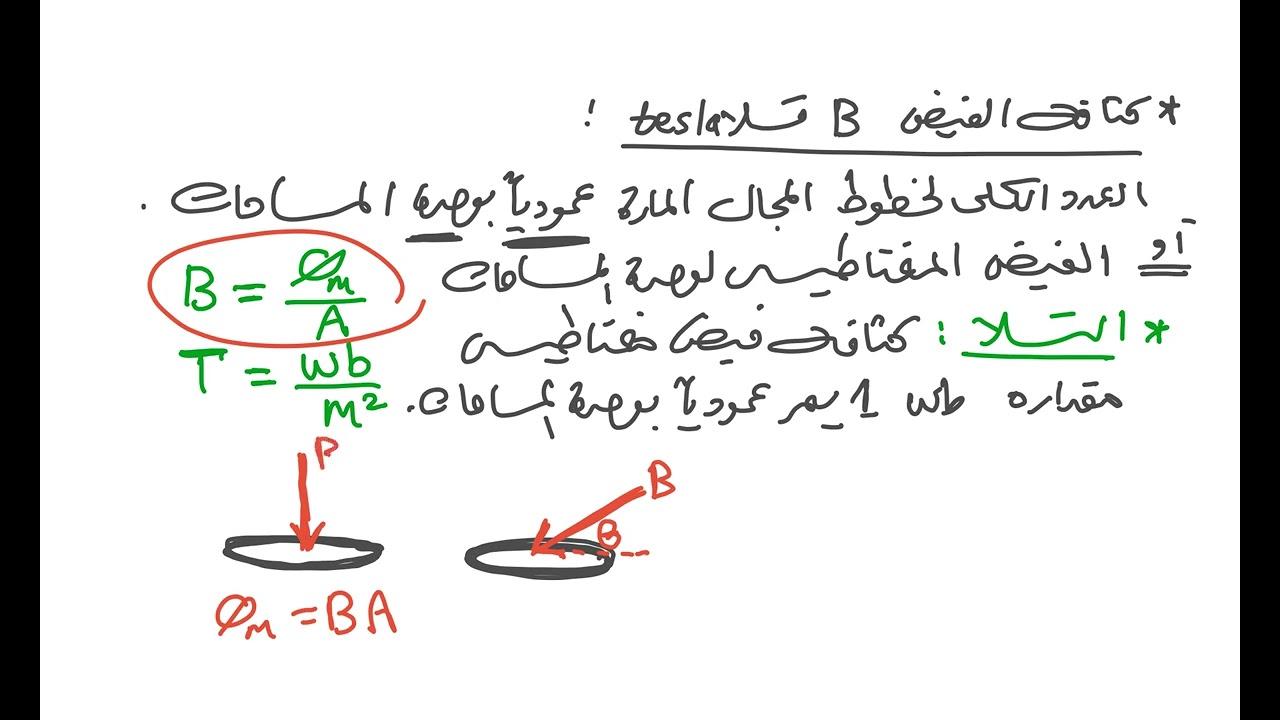 * كثافة الفيض B تسلا tesla :
العدد الكلي لخطوط المجال المارة عمودياً بوحدة المساحات .
أو الفيض المغناطيسي لوحدة المساحات
B = Φm / A
* التسلا : كثافة فيض مغناطيسي
T = wb / m²
مقداره 1 wb يمر عمودياً بوحدة المساحات .
B
θ
Φm = BA